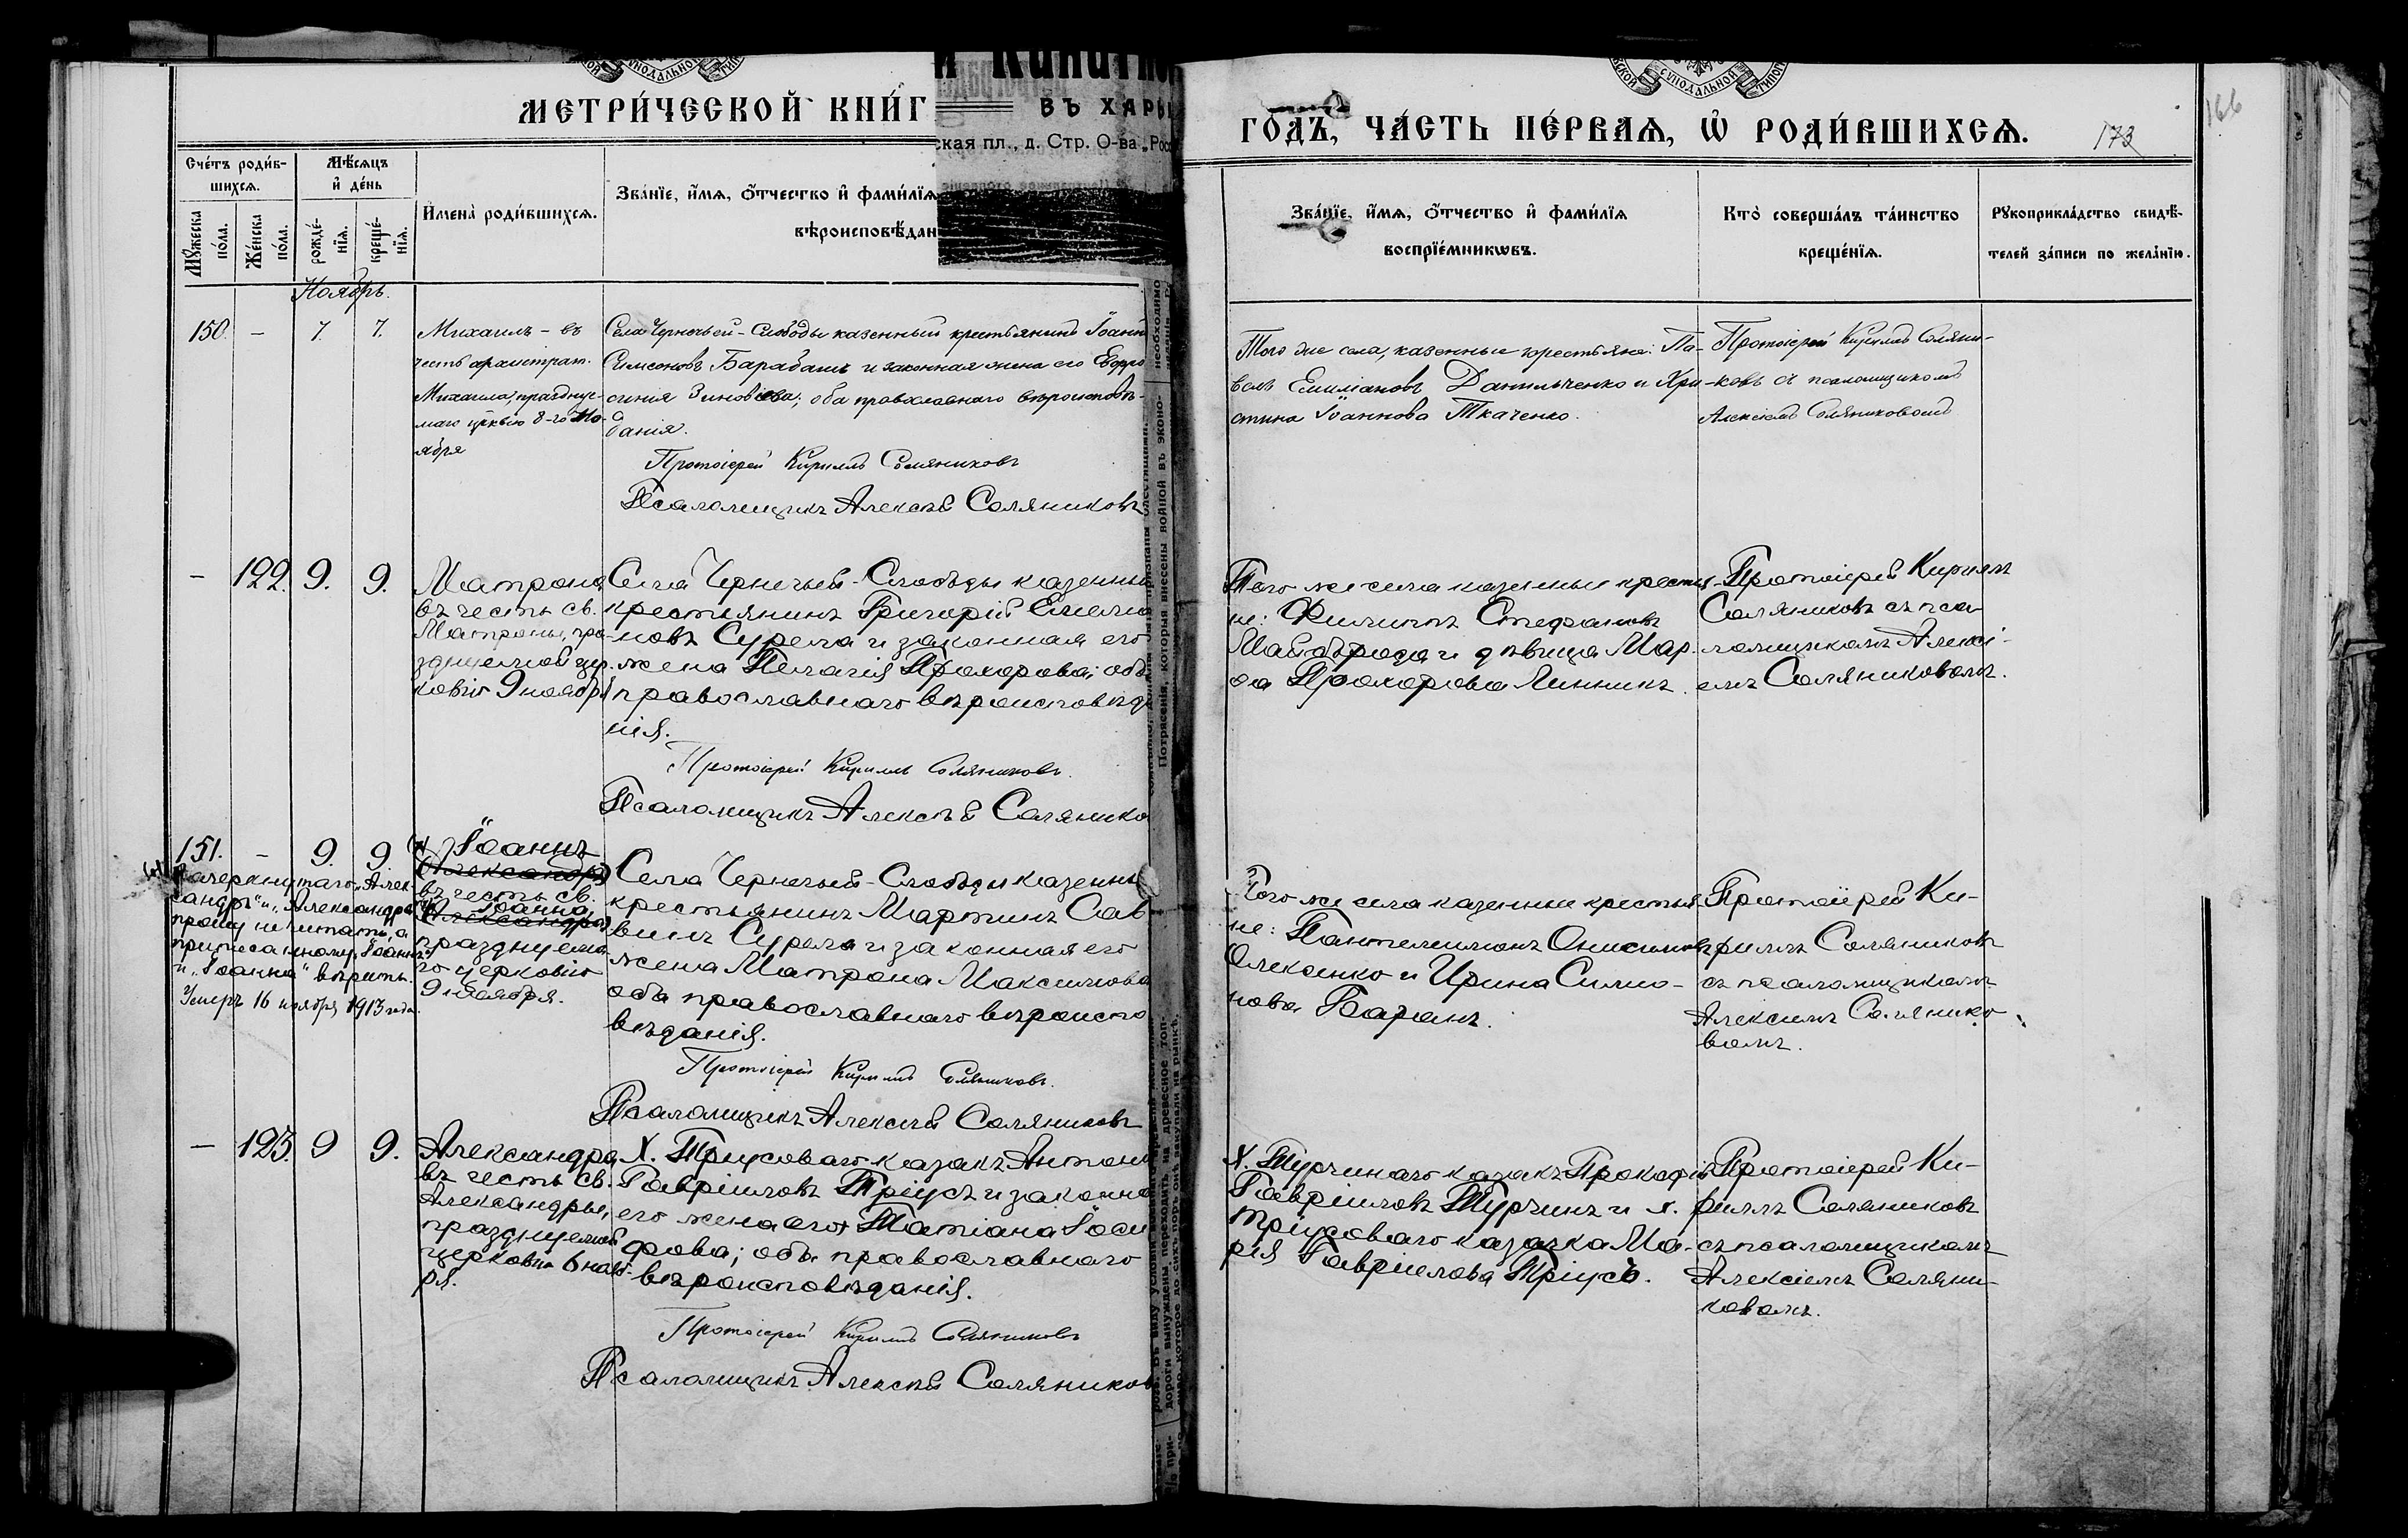 МЕТРИ́ЧЕСКОЙ КНИ́Г
ВЪ ХАРЬ
ская пл., д. Стр. О-ва „Рос
ГО́ДЪ, ЧА́СТЬ ПЕ́РВАѦ, Ѡ҆ РОДИ́ВШИХСѦ.
173
166
Сче́тъ роди́в-
шихсѧ.
Мѣ́сѧцъ
и҆ де́нь
Мꙋ́жеска
по́ла.
Же́нска
по́ла.
рожде́-
нїѧ.
креще́-
нїѧ.
И҆мена̀ роди́вшихсѧ.
Зва́нїе, и҆́мѧ, ѻ҆́тчество и҆ фами́лїѧ
вѣроисповѣ́дан
Зва́нїе, и҆́мѧ, ѻ҆́тчество и҆ фами́лїѧ
воспрїе́мникѡвъ.
Кто̀ соверша́лъ та́инство
креще́нїѧ.
Рꙋкоприкла́дство свидѣ́-
телей за́писи по жела́нїю.
Ноябрь.
150. – 7. 7.
Михаилъ – въ
честь архистрат.
Михаила, праздну-
маго црквью 8-го Но-
ября
Села Чернечьей-Слободы казенный крестьянинъ Іоаннъ
Симеоновъ Барабашъ и законная жена его Евфро
синия Зиновіева; оба православнаго вѣроисповѣ-
данія.
Протоіерей Кириллъ Соляниковъ
Псаломщикъ Алексѣй Соляниковъ
Того же села, казенные крестьяне: Па-
велъ Емиліановъ Данильченко и Хри-
стина Іоаннова Ткаченко.
Протоіерей Кириллъ Соляни-
ковъ съ псаломщикомъ
Алексіемъ Соляниковомъ
– 122. 9. 9.
Матрона
въ честь св.
Матроны, пра-
зднуемой цер-
ковію 9 ноября
Села Чернечьей-Слободы казенны
крестьянинъ Григорій Емелиа
новъ Сурела и законная его
жена Пелагія Прохорова; оба
православнаго вѣроисповѣда
нія.
Протоіерей Кириллъ Соляниковъ.
Псаломщикъ Алексѣй Соляников
Того же села казенные крестья-
не: Филиппъ Стефановъ
Майборода и дѣвица Мар-
ѳа Прохорова Линникъ.
Протоіерей Кириллъ
Соляниковъ съ пса-
ломщикомъ Алексі-
емъ Соляниковомъ.
151. – 9. 9.
Зачеркнутаго „Алек-
сандръ“ и „Александра“
прошу не читать, а
приписанному „Іоаннъ“
и „Іоанна“ вѣрить.
Умеръ 16 ноября 1913 года.
Іоаннъ
(Александръ)
въ честь св.
Іоанна
(Александра)
празднуема-
го церковію
9 ноября.
Села Чернечьей-Слободы казенны
крестьянинъ Мартинъ Сав
винъ Сурела и законная его
жена Матрона Максимова
оба православнаго вѣроиспо
вѣданія.
Протоіерей Кириллъ Соляниковъ.
Псаломщикъ Алексѣй Соляниковъ
Того же села казенные крестья
не: Пантелеимонъ Онисимовъ
Олексенко и Ирина Симо-
нова Баранъ.
Протоіерей Ки-
риллъ Соляниковъ
съ псаломщикомъ
Алексіемъ Солянико-
вомъ.
– 123. 9 9.
Александра
въ честь св.
Александры,
празднуемой
церковію 6 нояб-
ря.
Х. Тріусоваго казакъ Антоні
Гавріиловъ Тріусъ и законна
его жена его Татіана Іоси
фова; оба православнаго
вѣроисповѣданія.
Протоіерей Кириллъ Соляниковъ
Псаломщикъ Алексѣй Соляников
Х. Турчинаго казакъ Прокофій
Гавріиловъ Турчинъ и х.
Тріусоваго казачка Ма-
рія Гавріилова Тріусъ.
Протоіерей Ки-
риллъ Соляниковъ
съ псаломщикомъ
Алексіемъ Соляни-
ковомъ.